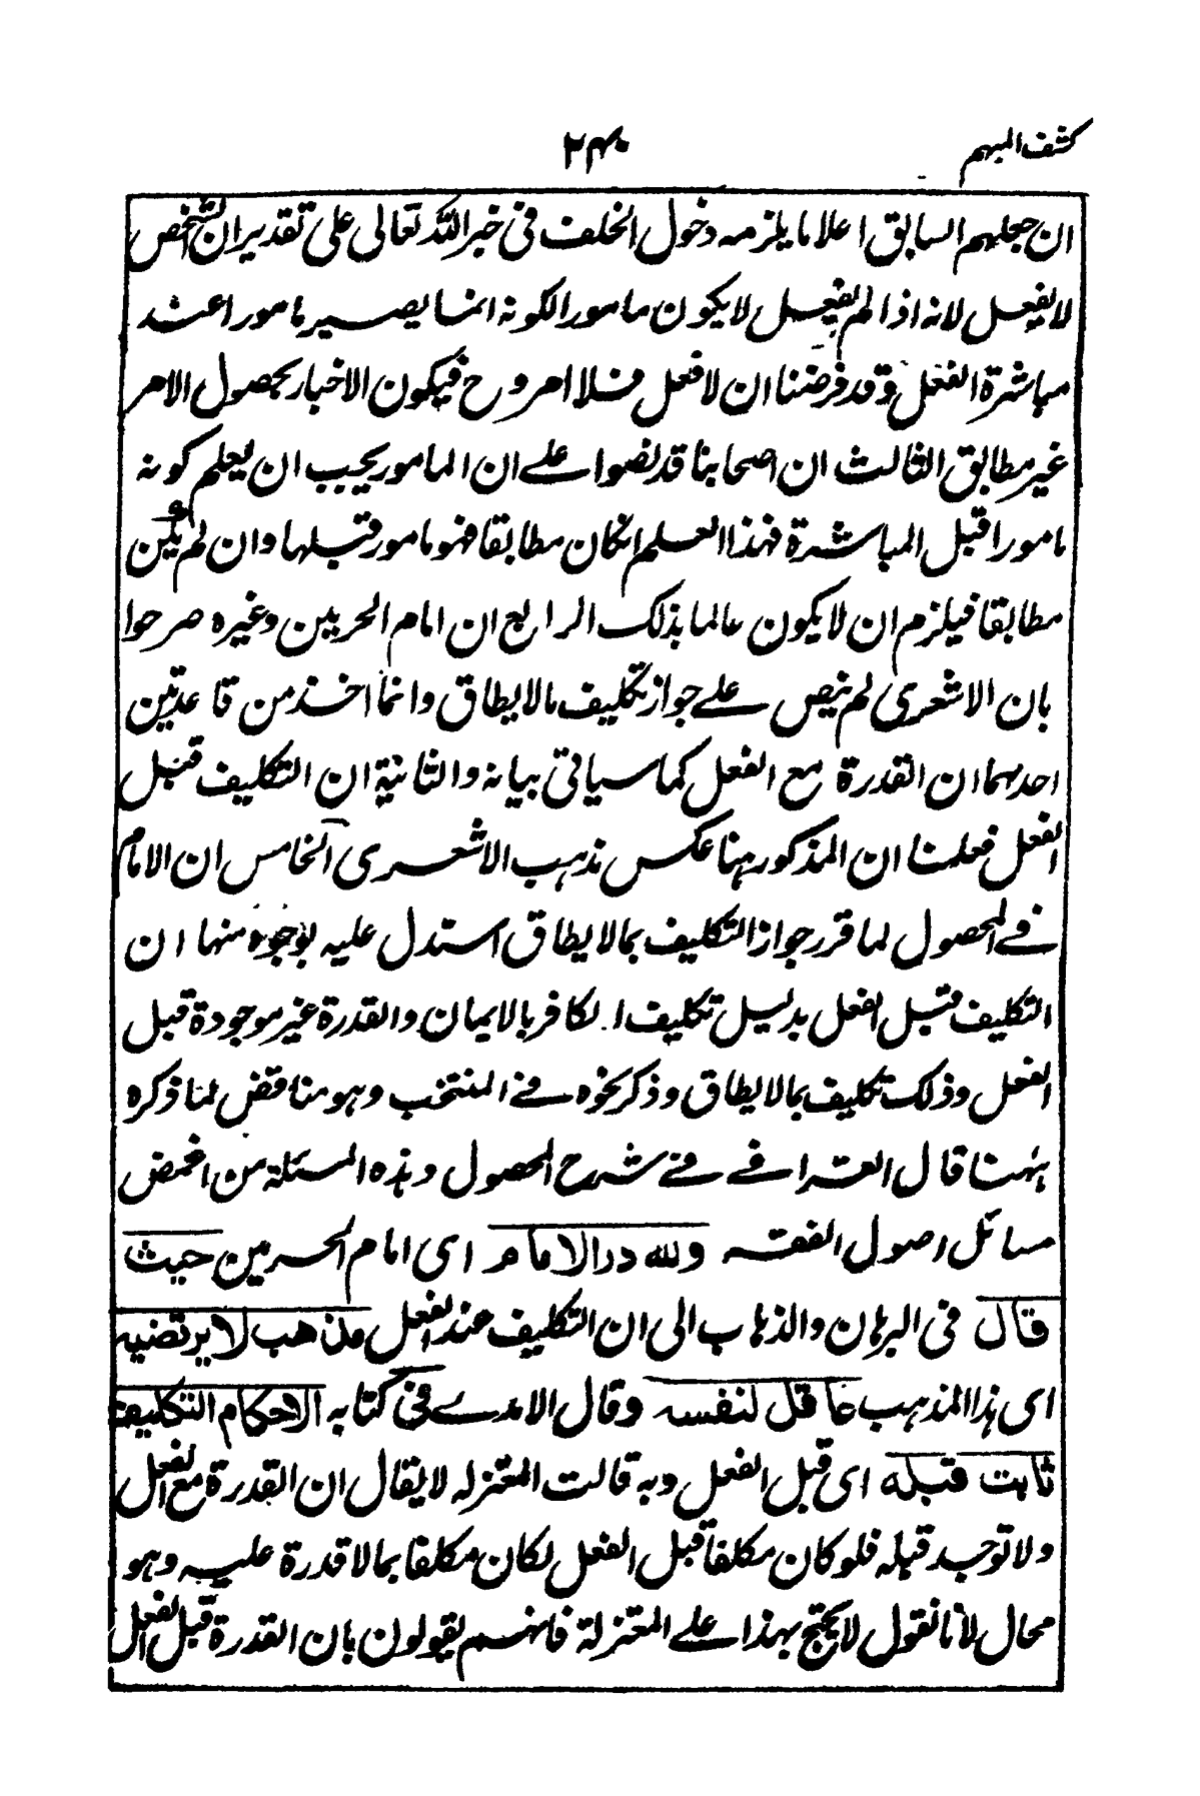 كشف المبهم
٢٤٠
ان جعلهم السابق اعلاما يلزمه دخول الخلف في خبر الله تعالى على تقدير ان الشخص
لا يفعل لانه اذا لم يفعل لا يكون مامورا لكونه انما يصير مامورا عند
مباشرة الفعل وقد فرضنا ان لا فعل فلا امر وح فيكون الاخبار بحصول الامر
غير مطابق الثالث ان اصحابنا قد نصوا على ان المامور يجب ان يعلم كونه
مامورا قبل المباشرة فهذا العلم انكان مطابقا فهو مامور قبلها وان لم يكن
مطابقا فيلزم ان لا يكون عالما بذلك الرابع ان امام الحرمين وغيره صرحوا
بان الاشعرى لم ينص على جواز تكليف ما لا يطاق وانما اخذ من قاعدتين
احدهما ان القدرة مع الفعل كما سياتى بيانه والثانية ان التكليف قبل
الفعل فعلمنا ان المذكور ههنا عكس مذهب الاشعرى الخامس ان الامام
في المحصول لما قرر جواز التكليف بما لا يطاق استدل عليه بوجوه منها ان
التكليف قبل الفعل بدليل تكليف الكافر بالايمان والقدرة غير موجودة قبل
الفعل وذلك تكليف بما لا يطاق وذكر نحوه في المنتخب وهو مناقض لما ذكره
ههنا قال القرافي في شرح المحصول وهذه المسئلة من اغمض
مسائل اصول الفقه ولله در الامام اى امام الحرمين حيث
قال في البرهان والذهاب الى ان التكليف عند الفعل مذهب لا يرتضيه
اى هذا المذهب عاقل لنفسه وقال الامدى في كتابه الاحكام التكليف
ثابت قبله اى قبل الفعل وبه قالت المعتزله لا يقال ان القدرة مع الفعل
ولا توجد قبله فلو كان مكلفا قبل الفعل لكان مكلفا بما لا قدرة عليه وهو
محال لانا نقول لا يحتج بهذا على المعتزلة فانهم يقولون بان القدرة قبل الفعل